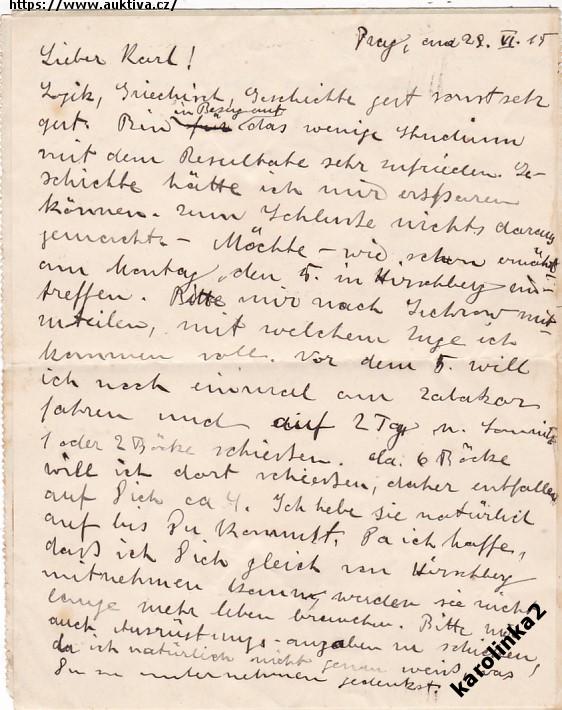 https://www.auktiva.cz/
Prag, am 29. VI. 15
Lieber Karl!
Logik, Griechisch, Geschichte gut sonst sehr
gut. Bin in Bezug auf das wenige Studium
mit dem Resultate sehr zufrieden. Ge-
schichte hätte ich mir ersparen
können. zum Schlusse nichts daraus
gemacht. – Möchte – wie schon erwähnt
am Montag, den 5. in Hirschberg ein-
treffen. Bitte mir nach mit-
zuteilen, mit welchem Zuge ich
kommen soll. Vor dem 5. will
ich noch einmal am
fahren und auf 2 Tage n.
1 oder 2 Böcke schiessen. da. 6 Böcke
will ich dort schiessen, daher entfallen
auf Dich ca 4. Ich hebe sie natürlich
auf bis Du kommst. Da ich hoffe,
daß ich Dich gleich von Hirschberg
mitnehmen kann, werden sie nicht
lange mehr leben brauchen. Bitte mir
auch Ausrüstungs-angaben zu schicken,
da ich natürlich nicht genau weiß was
Du zu unternehmen gedenkst.
karolinka2